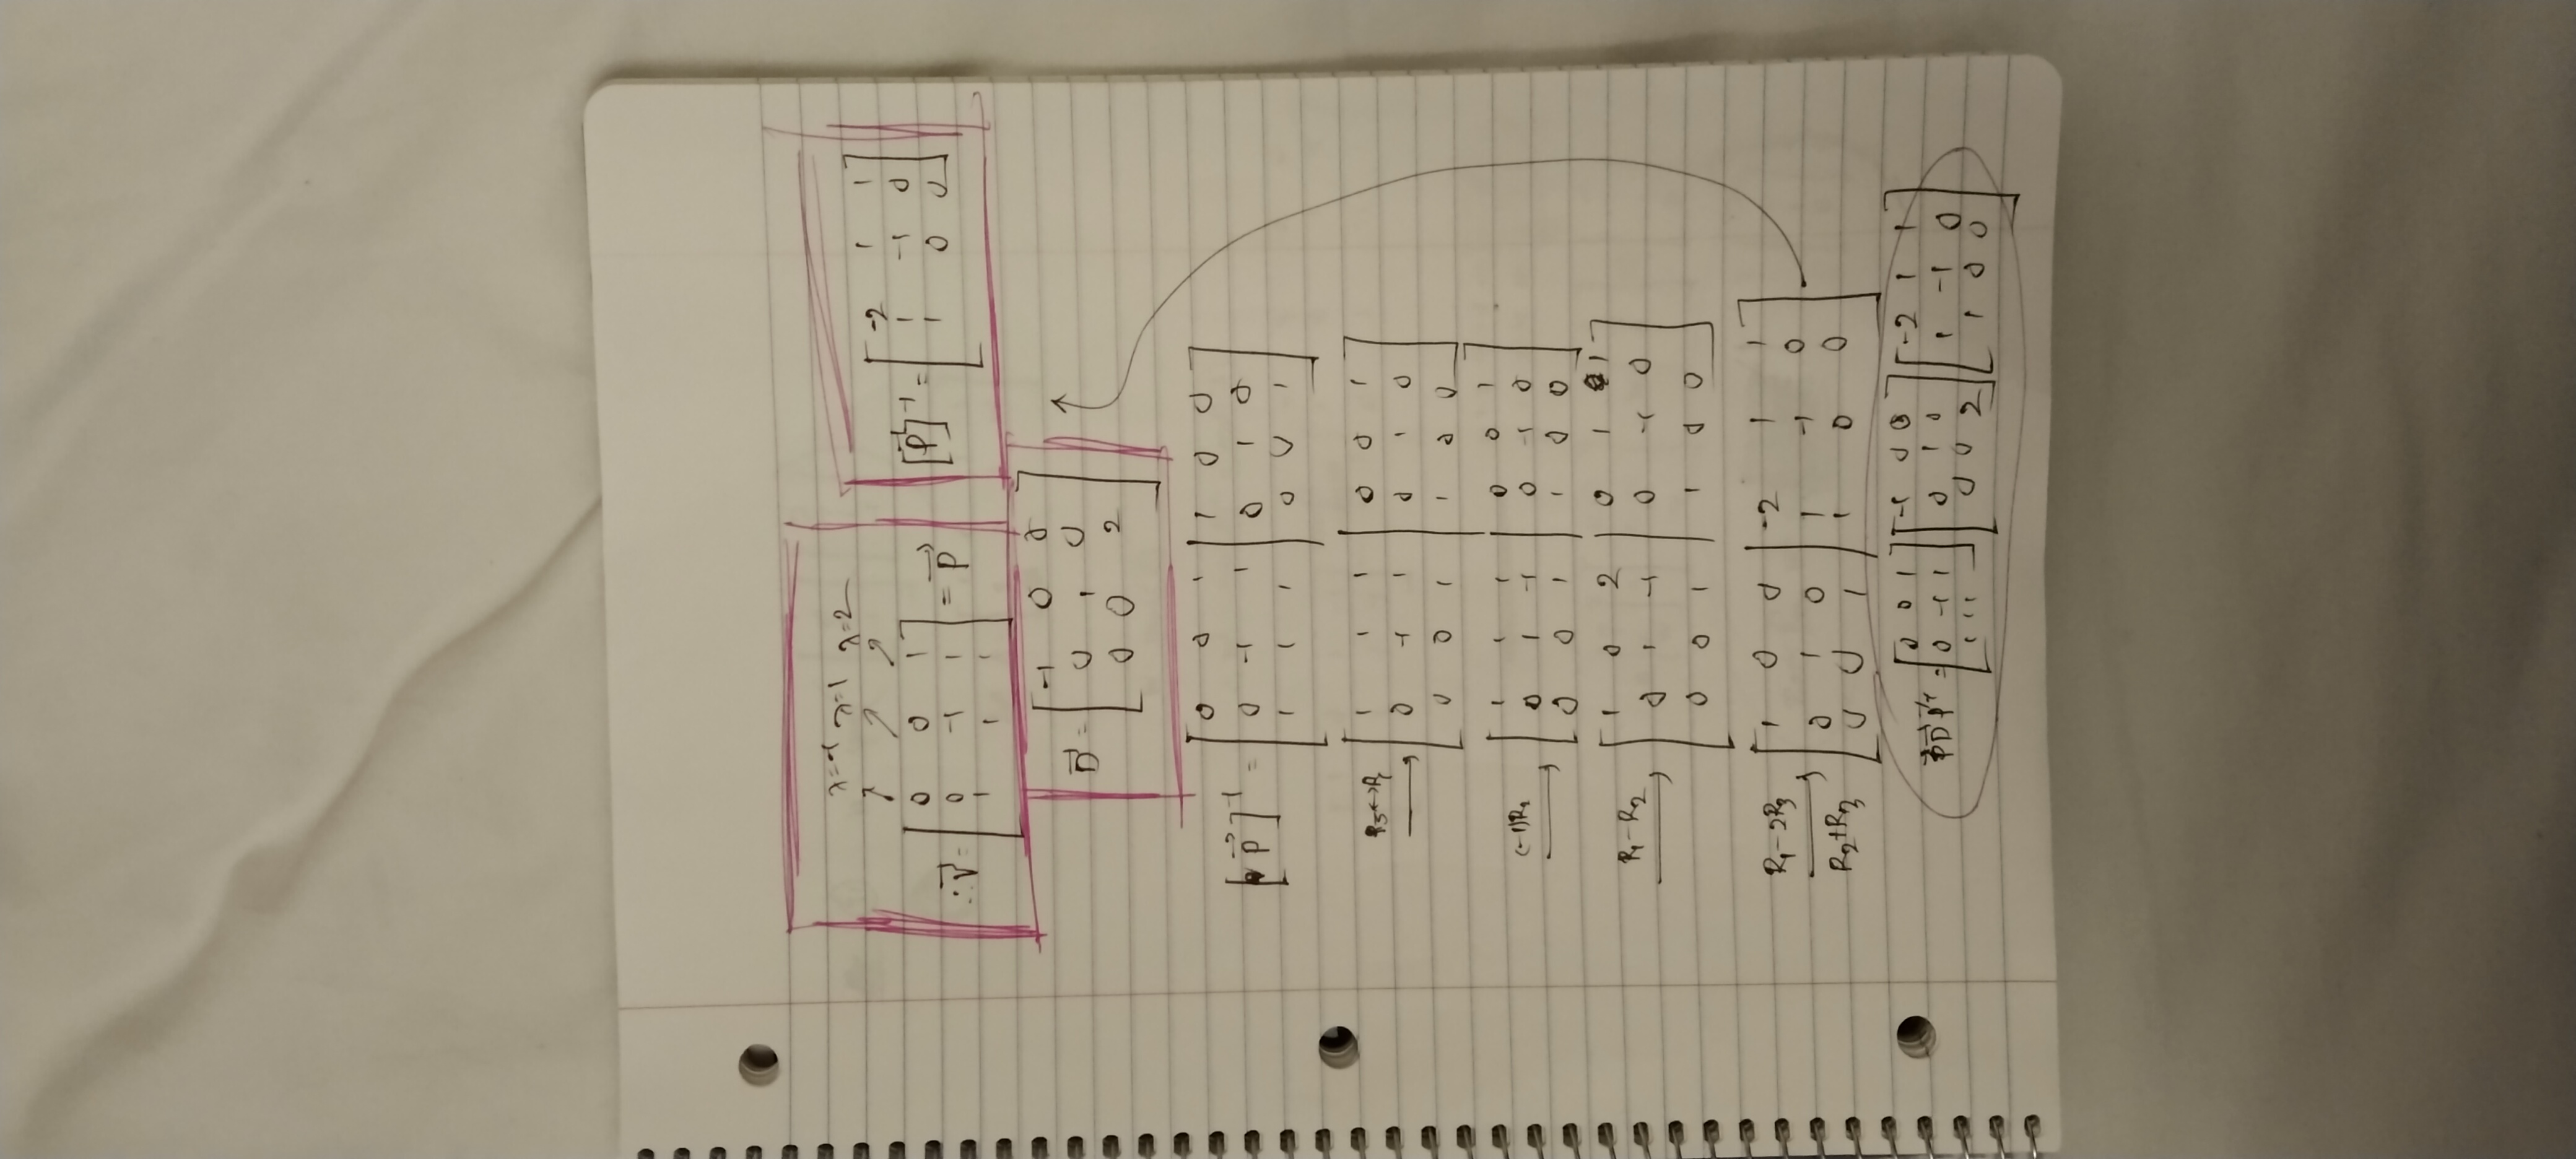 λ=-1 λ=1 λ=2
∴ V⃗ = [ 0 0 1 ; 0 -1 1 ; 1 1 1 ] = P⃗
[P⃗]⁻¹ = [ -2 1 1 ; 1 -1 0 ; 1 0 0 ]
D⃗ = [ -1 0 0 ; 0 1 0 ; 0 0 2 ]
[P⃗]⁻¹ = [ 0 0 1 | 1 0 0 ; 0 -1 1 | 0 1 0 ; 1 1 1 | 0 0 1 ]
R₃↔R₁ → [ 1 1 1 | 0 0 1 ; 0 -1 1 | 0 1 0 ; 0 0 1 | 1 0 0 ]
(-1)R₂ → [ 1 1 1 | 0 0 1 ; 0 1 -1 | 0 -1 0 ; 0 0 1 | 1 0 0 ]
R₁-R₂ → [ 1 0 2 | 0 1 1 ; 0 1 -1 | 0 -1 0 ; 0 0 1 | 1 0 0 ]
R₁-2R₃ R₂+R₃ → [ 1 0 0 | -2 1 1 ; 0 1 0 | 1 -1 0 ; 0 0 1 | 1 0 0 ]
P⃗D⃗P⃗⁻¹ = [ 0 0 1 ; 0 -1 1 ; 1 1 1 ] [ -1 0 0 ; 0 1 0 ; 0 0 2 ] [ -2 1 1 ; 1 -1 0 ; 1 0 0 ]